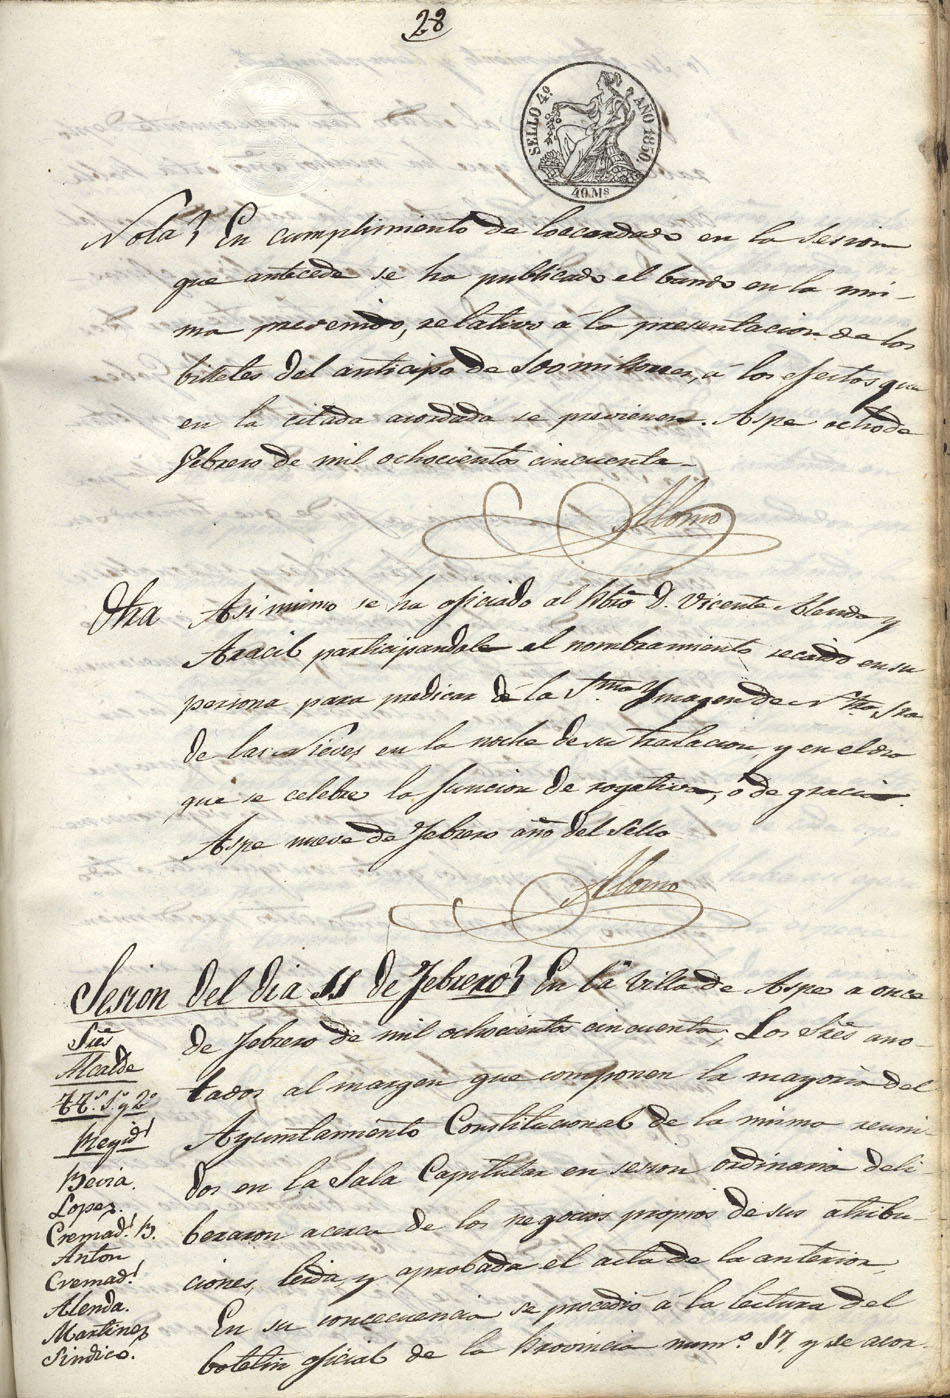 28
SELLO 4º AÑO 1850.
40 Ms
Nota? En cumplimiento de lo acordado en la Sesion
que antecede se ha publicado el bando en la mis-
ma prevenido, relativo á la presentacion de los
billetes del anticipo de 100 millones, á los efectos que
en la citada acordada se previenen. Aspe ocho de
Febrero de mil ochocientos cincuenta.
Otra Asimismo se ha oficiado al Pbro D. Vicente Alenda y
Aracil participandole el nombramiento recaido en su
persona para predicar de la Sma Ymagen de Ntra Sra
de las Nieves, en la noche de su tralacion, y en el dia
que se celebre la funcion de rogativa, ó de gracia.
Aspe nueve de Febrero año del Sello.
Sesion del dia 11 de Febrero? En la Villa de Aspe a once
de Febrero de mil ochocientos cincuenta; Los Sres ano-
tados al margen que componen la mayoria del
Ayuntamiento Constitucional de la misma reuni-
dos en la Sala Capitular en sesion ordinaria deli-
beraron acerca de los negocios propios de sus atribu-
ciones, leida, y aprobada el acta de la anterior.
En su concecuencia se procedió á la lectura del
boletin oficial de la Provincia num.º 17, y se acor-
Sres
Alcalde
TT.s 1.º y 2.º
Regid.s
Bevia.
Lopez.
Cremad.s B.
Anton
Cremad.s
Alenda.
Martinez
Sindico.